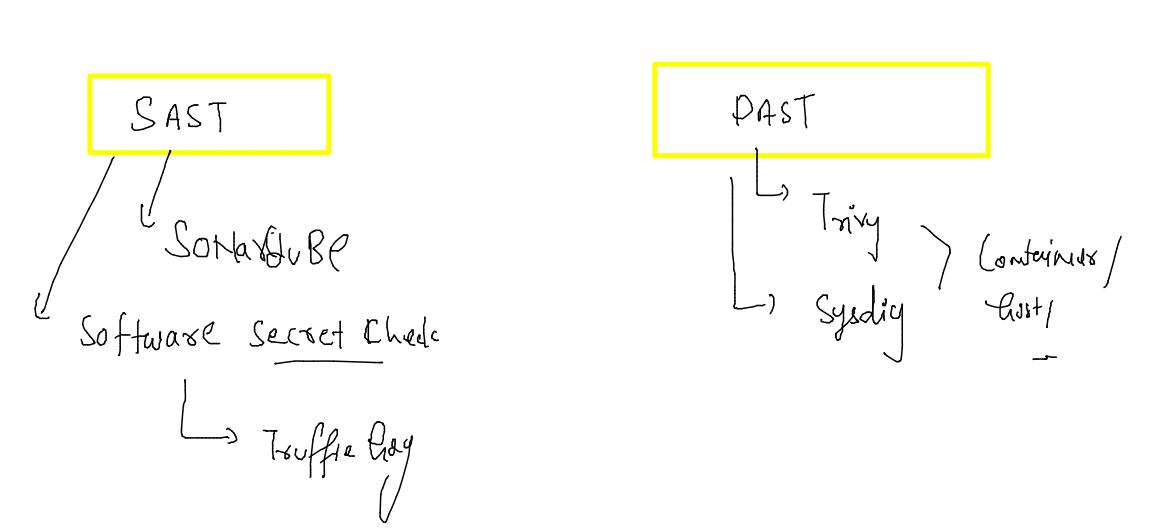 SAST
SonarQuBe
Software Secret Check
Truffle Hog
DAST
Trivy
Sysdig
Container/
Host/